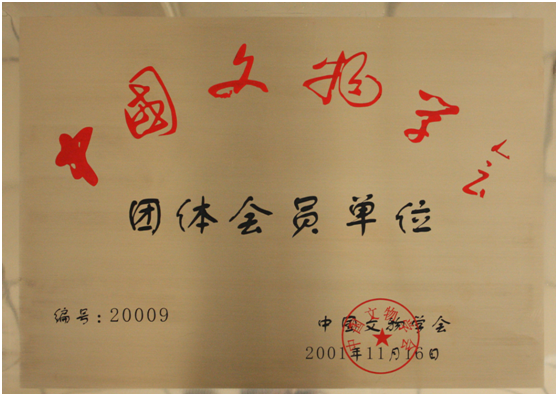 中國文物学会
团体会员单位
编号:20009
中国文物学会
2001年11月16日
中国文物学会